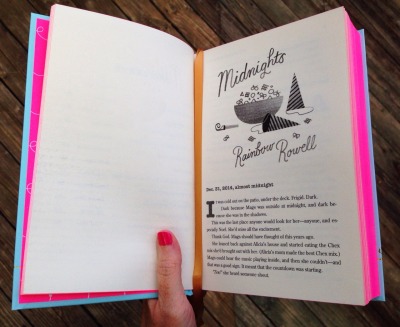 Midnights
Rainbow Rowell
Dec. 31, 2014, almost midnight
It was cold out on the patio, under the deck. Frigid. Dark.
Dark because Mags was outside at midnight, and dark be-
cause she was in the shadows.
This was the last place anyone would look for her—anyone, and es-
pecially Noel. She'd miss all the excitement.
Thank God. Mags should have thought of this years ago.
She leaned back against Alicia's house and started eating the Chex
mix she'd brought out with her. (Alicia's mom made the best Chex mix.)
Mags could hear the music playing inside, and then she couldn't—and
that was a good sign. It meant that the countdown was starting.
"Ten!" she heard someone shout.